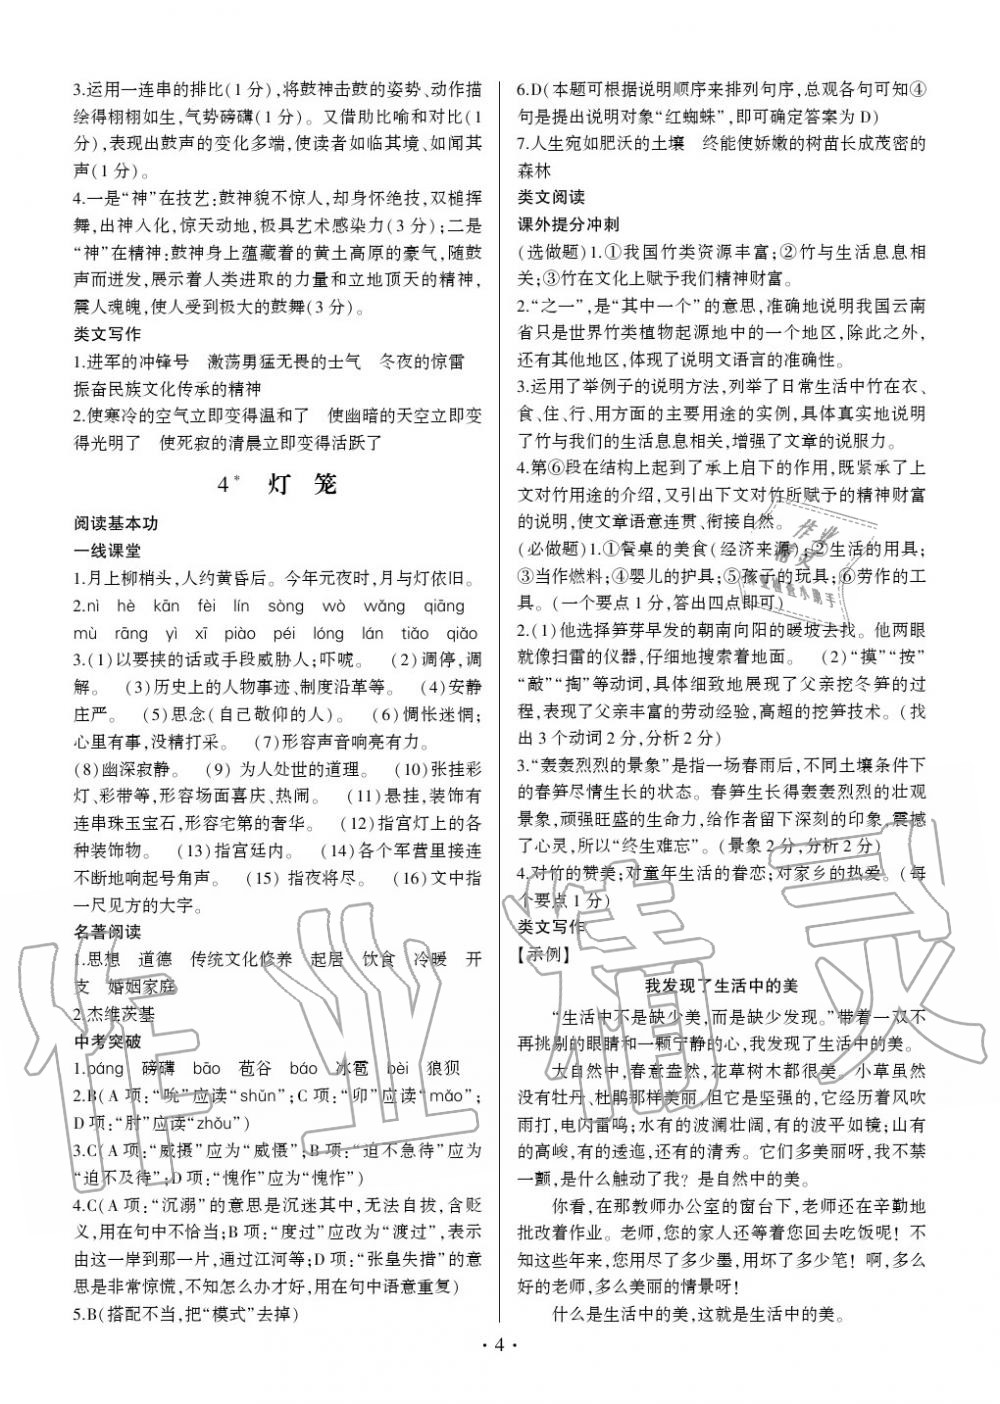 3.运用一连串的排比(1 分),将鼓神击鼓的姿势、动作描
绘得栩栩如生,气势磅礴(1 分)。又借助比喻和对比(1
分),表现出鼓声的变化多端,使读者如临其境、如闻其
声(1 分)。
4.一是“神”在技艺:鼓神貌不惊人,却身怀绝技,双槌挥
舞,出神入化,惊天动地,极具艺术感染力(3 分);二是
“神”在精神:鼓神身上蕴藏着的黄土高原的豪气,随鼓
声而迸发,展示着人类进取的力量和立地顶天的精神,
震人魂魄,使人受到极大的鼓舞(3 分)。
类文写作
1.进军的冲锋号 激荡勇猛无畏的士气 冬夜的惊雷
振奋民族文化传承的精神
2.使寒冷的空气立即变得温和了 使幽暗的天空立即变
得光明了 使死寂的清晨立即变得活跃了
4* 灯 笼
阅读基本功
一线课堂
1.月上柳梢头,人约黄昏后。今年元夜时,月与灯依旧。
2.nì hè kān fèi lín sòng wò wǎng qiāng
mù rāng yì xī piào péi lóng lán tiǎo qiǎo
3.(1)以要挟的话或手段威胁人;吓唬。 (2)调停,调
解。 (3)历史上的人物事迹、制度沿革等。 (4)安静
庄严。 (5)思念(自己敬仰的人)。 (6)惆怅迷惘;
心里有事,没精打采。 (7)形容声音响亮有力。
(8)幽深寂静。 (9) 为人处世的道理。 (10)张挂彩
灯、彩带等,形容场面喜庆、热闹。 (11)悬挂,装饰有
连串珠玉宝石,形容宅第的奢华。 (12)指宫灯上的各
种装饰物。 (13)指宫廷内。 (14)各个军营里接连
不断地响起号角声。 (15) 指夜将尽。 (16)文中指
一尺见方的大字。
名著阅读
1.思想 道德 传统文化修养 起居 饮食 冷暖 开
支 婚姻家庭
2.杰维茨基
中考突破
1.páng 磅礴 bāo 苞谷 báo 冰雹 bèi 狼狈
2.B(A 项:“吮”应读“shǔn”;C 项:“卯”应读“mǎo”;
D 项:“肘”应读“zhǒu”)
3.C(A 项:“威摄”应为“威慑”;B 项:“迫不急待”应为
“迫不及待”;D 项:“愧作”应为“愧怍”)
4.C(A 项:“沉溺”的意思是沉迷其中,无法自拔,含贬
义,用在句中不恰当;B 项:“度过”应改为“渡过”,表示
由这一岸到那一片,通过江河等;D 项:“张皇失措”的意
思是非常惊慌,不知怎么办才好,用在句中语意重复)
5.B(搭配不当,把“模式”去掉)
6.D(本题可根据说明顺序来排列句序,总观各句可知④
句是提出说明对象“红蜘蛛”,即可确定答案为 D)
7.人生宛如肥沃的土壤 终能使娇嫩的树苗长成茂密的
森林
类文阅读
课外提分冲刺
(选做题)1.①我国竹类资源丰富;②竹与生活息息相
关;③竹在文化上赋予我们精神财富。
2.“之一”,是“其中一个”的意思,准确地说明我国云南
省只是世界竹类植物起源地中的一个地区,除此之外,
还有其他地区,体现了说明文语言的准确性。
3.运用了举例子的说明方法,列举了日常生活中竹在衣、
食、住、行、用方面的主要用途的实例,具体真实地说明
了竹与我们的生活息息相关,增强了文章的说服力。
4.第⑥段在结构上起到了承上启下的作用,既紧承了上
文对竹用途的介绍,又引出下文对竹所赋予的精神财富
的说明,使文章语意连贯、衔接自然。
(必做题)1.①餐桌的美食(经济来源);②生活的用具;
③当作燃料;④婴儿的护具;⑤孩子的玩具;⑥劳作的工
具。(一个要点 1 分,答出四点即可)
2.(1)他选择笋芽早发的朝南向阳的暖坡去找。他两眼
就像扫雷的仪器,仔细地搜索着地面。 (2)“摸”“按”
“敲”“掏”等动词,具体细致地展现了父亲挖冬笋的过
程,表现了父亲丰富的劳动经验,高超的挖笋技术。(找
出 3 个动词 2 分,分析 2 分)
3.“轰轰烈烈的景象”是指一场春雨后,不同土壤条件下
的春笋尽情生长的状态。春笋生长得轰轰烈烈的壮观
景象,顽强旺盛的生命力,给作者留下深刻的印象,震撼
了心灵,所以“终生难忘”。(景象 2 分,分析 2 分)
4.对竹的赞美;对童年生活的眷恋;对家乡的热爱。(每
个要点 1 分)
类文写作
【示例】
我发现了生活中的美
“生活中不是缺少美,而是缺少发现。”带着一双不
再挑剔的眼睛和一颗宁静的心,我发现了生活中的美。
大自然中,春意盎然,花草树木都很美。小草虽然
没有牡丹、杜鹃那样美丽,但它是坚强的,它经历着风吹
雨打,电闪雷鸣;水有的波澜壮阔,有的波平如镜;山有
的高峻,有的逶迤,还有的清秀。它们多美丽呀,我不禁
一颤,是什么触动了我?是自然中的美。
你看,在那教师办公室的窗台下,老师还在辛勤地
批改着作业。老师,您的家人还等着您回去吃饭呢!不
知这些年来,您用尽了多少墨,用坏了多少笔!啊,多么
好的老师,多么美丽的情景呀!
什么是生活中的美,这就是生活中的美。
· 4 ·
作业精灵
作业
精灵
作业检查小助手